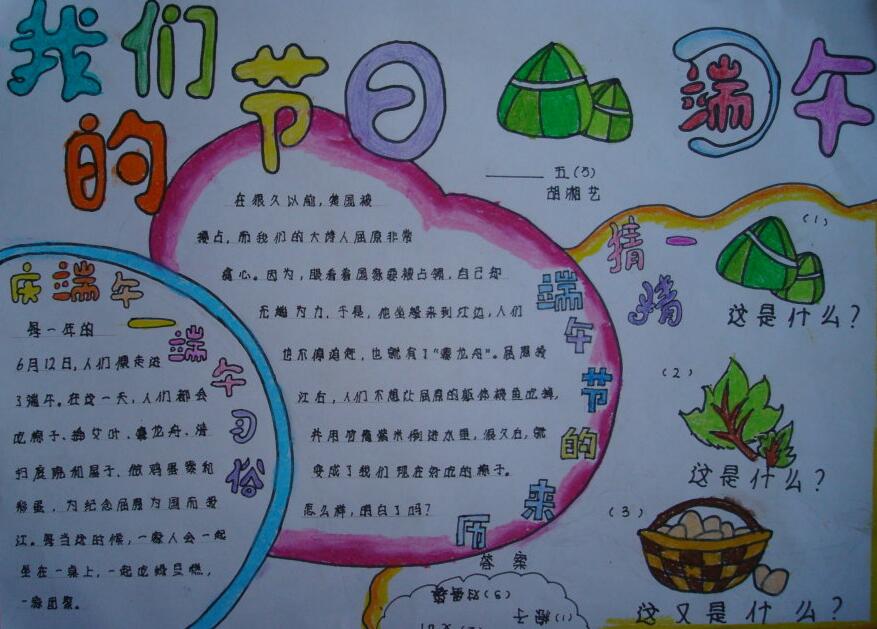 我们
的节日
端午
五(3)
胡湘艺
庆端午
端午习俗
每一年的
6月12日,人们便走进
了端午。在这一天,人们都会
吃粽子、插艾叶、赛龙舟、洗
扫庭院和屋子、做鸡蛋紮和
彩蛋,为纪念屈原为国而投
江。每当这时候,一家人会一起
坐在一桌上,一起吃绿豆糕,
一家团聚。
在很久以前,楚国被
侵占,而我们的大诗人屈原非常
痛心。因为,眼看着国家要被占领,自己却
无能为力,于是,他坐船来到江边,人们
也不停追赶,也就有了“赛龙舟”。屈原投
江后,人们不想让屈原的躯体被鱼吃掉,
并用竹筒装米倒进水里,很久后,就
变成了我们现在好吃的粽子。
怎么样,明白了吗?
端午节的来历
猜一猜
(1)
这是什么?
(2)
这是什么?
(3)
这又是什么?
答案
(1)粽子
(3)鸡蛋